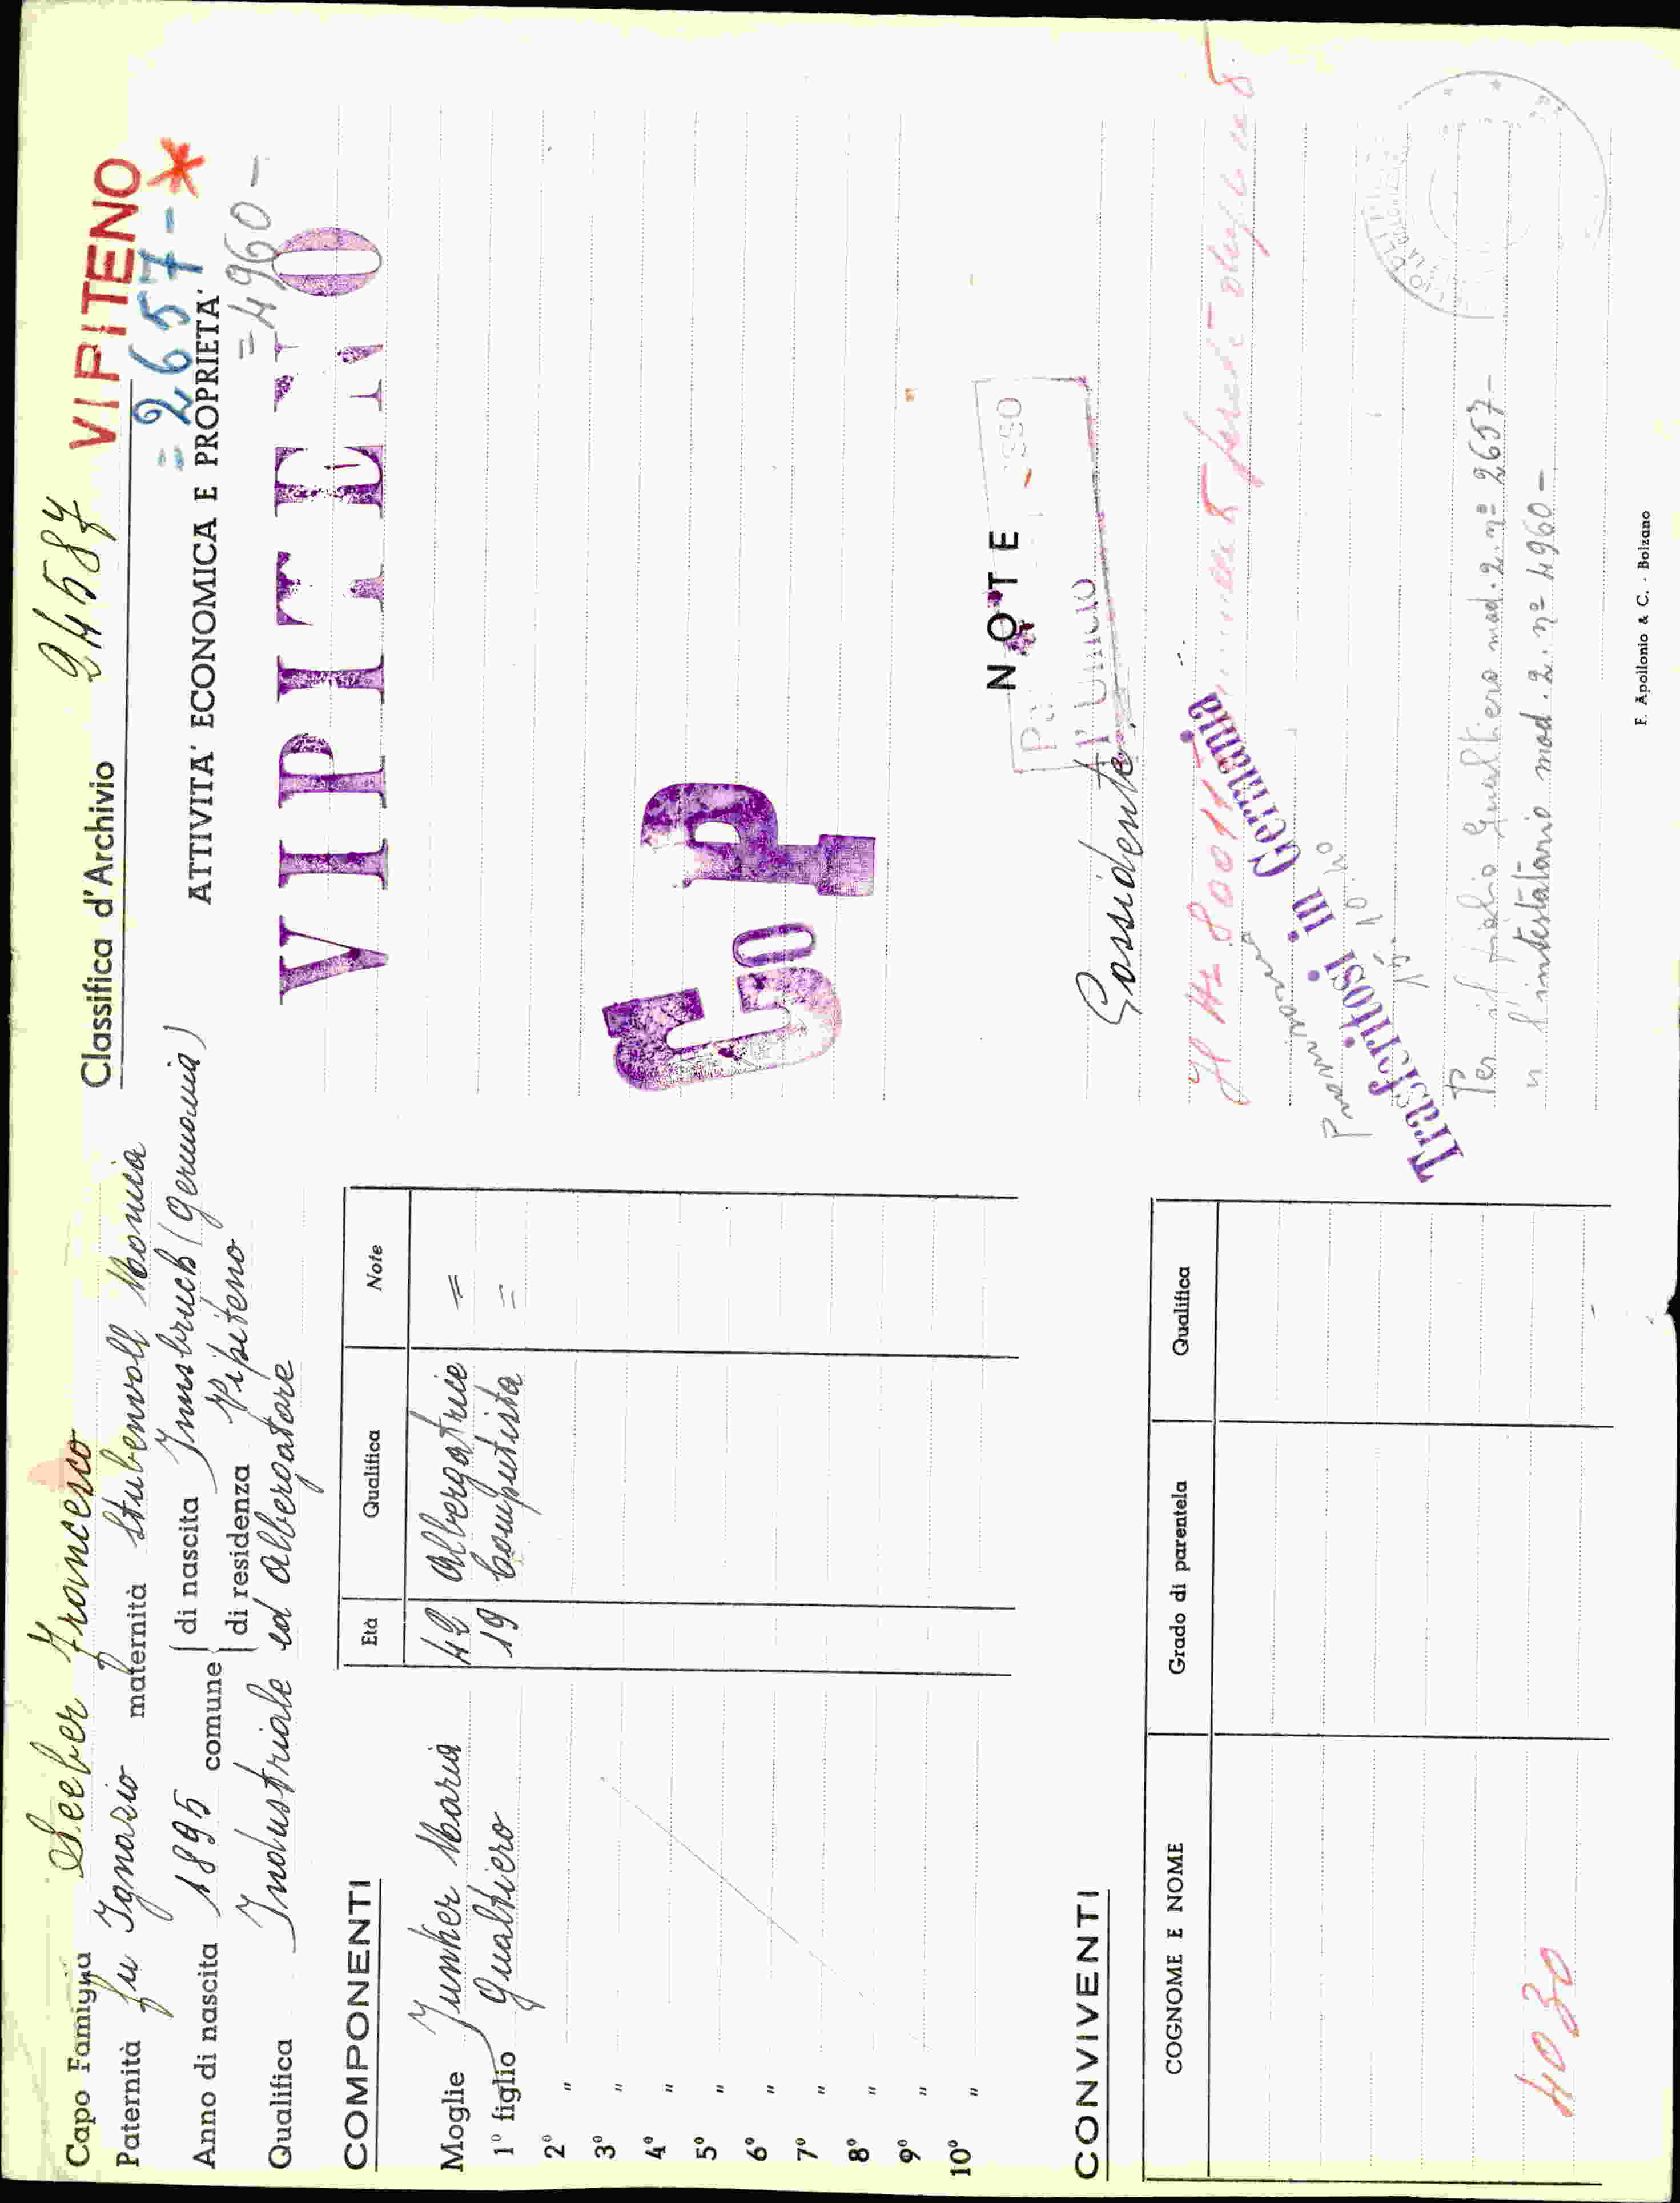 Capo Famiglia Seeber Francesco
Paternità fu Ignazio maternità Stubenvoll Monica
Anno di nascita 1895 comune di nascita Innsbruch (Germania)
di residenza Vipiteno
Qualifica Industriale ed albergatore
Classifica d'Archivio 24587
VIPITENO
= 2657 - *
ATTIVITA' ECONOMICA E PROPRIETA'
= 4960 -
VIPITENO
COMPONENTI
Età Qualifica Note
Moglie Junker Maria 42 Albergatrice =
1º figlio Gualtiero 19 Computista =
2º "
3º "
4º "
5º "
6º "
7º "
8º "
9º "
10º "
G P
NOTE
Possidente.
Trasferitosi in Germania
Per il figlio Gualtiero mod. 2. nº 2657 -
" l'intestatario mod. 2. nº 4960 -
CONVIVENTI
COGNOME E NOME Grado di parentela Qualifica
4030
F. Apollonio & C. - Bolzano